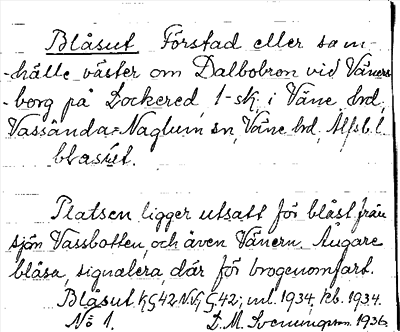 Blåsut Förstad eller sam-
hälle väster om Dalbobron vid Väners-
borg på Dockered, 1 sk, i Väne hd,
Vassända-Naglum sn, Väne hd, Älfsb. l.
blåsụt.
Platsen ligger utsatt för blåst från
sjön Vassbotten, och även Vänern. Ångare
blåsa, signalera, där för brogenomfart.
Blåsut KG42 NV G42; ml. 1934, kb. 1934.
No 1. D. M. Svenungsson. 1936.